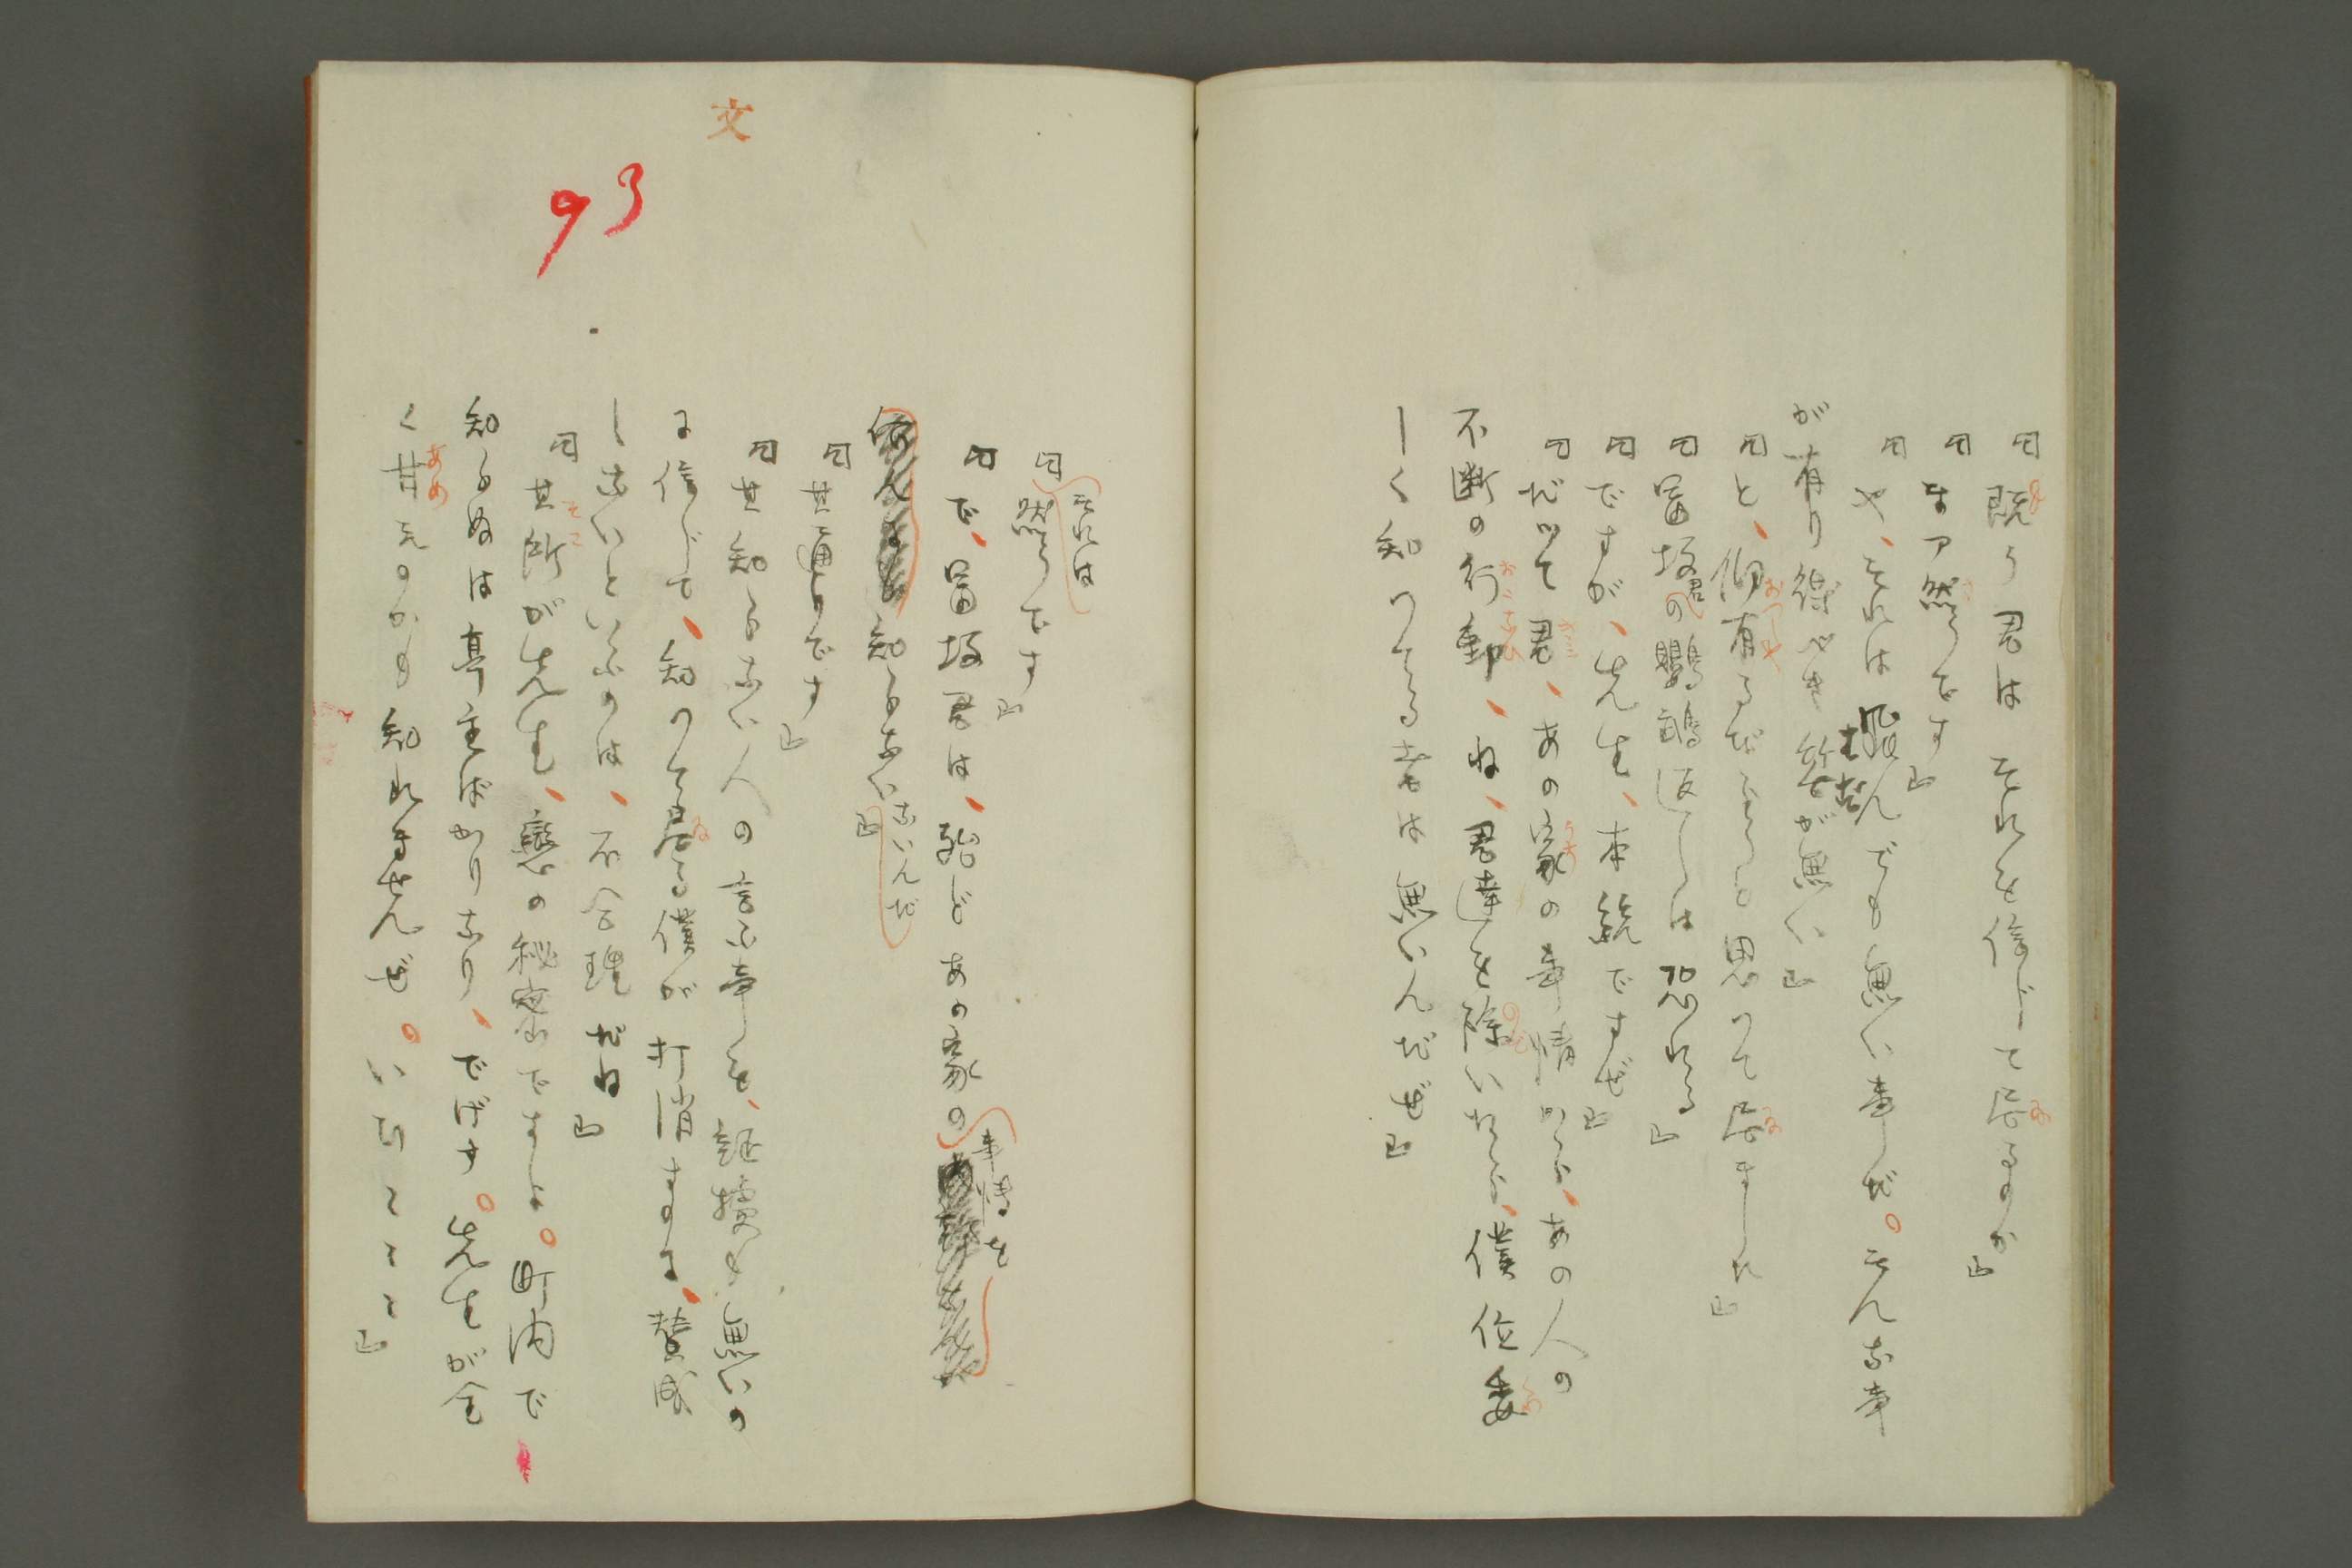 『既う君はそれを信じて居るのか』
『まア然うです』
『や、それは飛んでも無い事だ。そんな事
が有り得べき筈が無い』
『と、仰有るだらうと思つて居ました』
『冨坂君の鸚鵡返しは恐れる』
『ですが、先生、本統ですぜ』
『だツて君、あの家の事情から、あの人の
不断の行動、ね、君達を除いたら、僕位委
しく知つてる者は無いんだぜ』
文
93
『それは然うです』
『で、冨坂君は、殆どあの家の事情を
知らないないんだ』
『其通りです』
『其知らない人の言ふ事を、証拠も無いの
に信じて、知つて居る僕が打消すのに、賛成
しないといふのは、不合理だね』
『其所が先生、戀の秘密ですよ。町内で
知らぬは亭主ばかりなり、でげす。先生が全
く甘いのかも知れませんぜ。